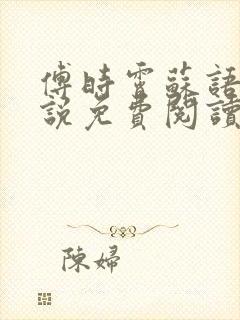 傅時霄蘇語
說免費閱讀
陳婦